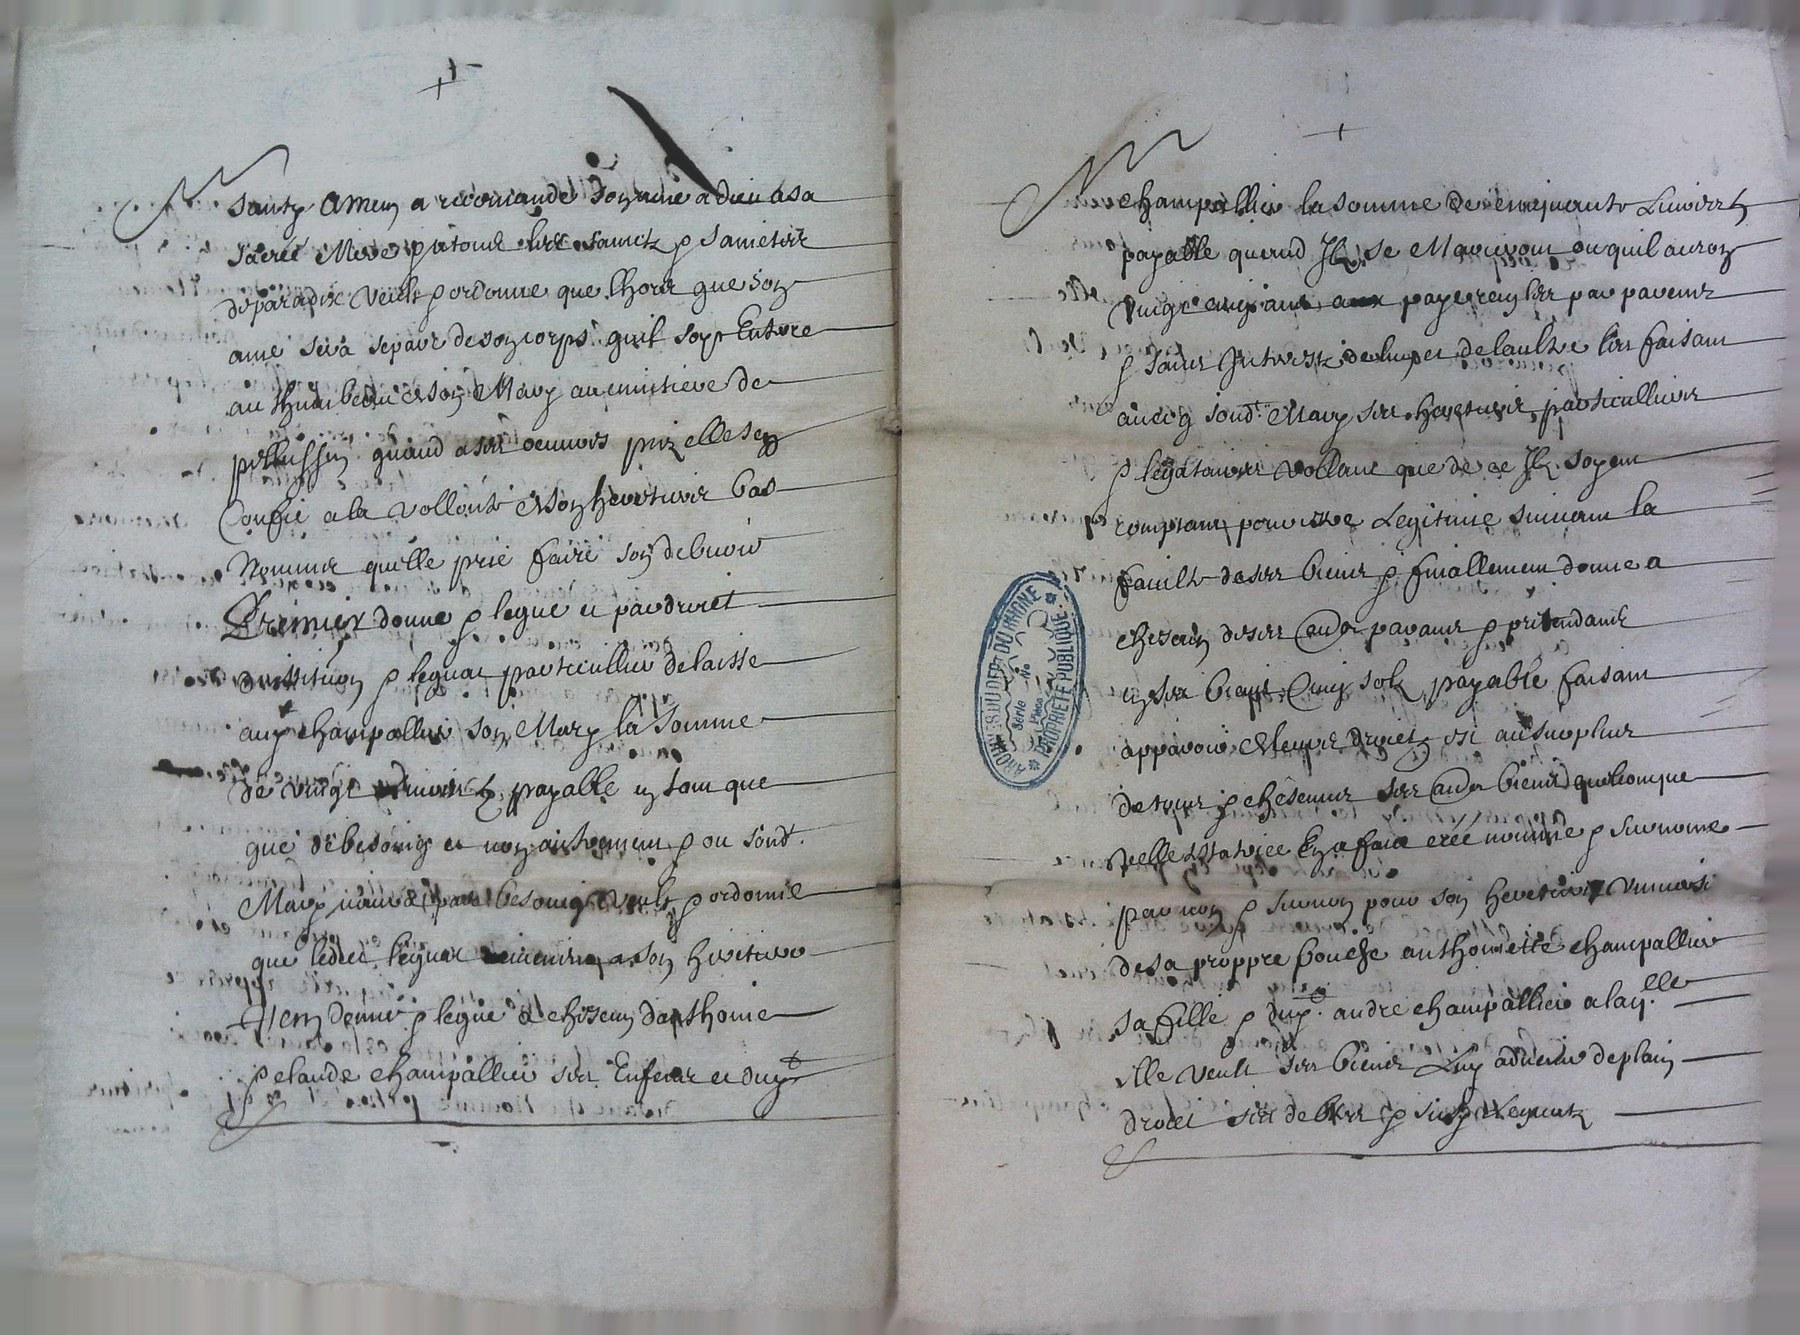 sainty Amen a recomandé son ame a dieu a sa
sacree Mere & a tous les sainctz & sainctes
de paradix veult & ordonne que lhors que son
ame sera separé de son corps quil soyt Enterré
au thumbeau de son Mary au cimitiere de
pellussin quand a ses oeuvres pies elle sen
Confie a la vollonté de son heretiere bas
Nommée quelle prie faire son debvoir
Premier donne & legue et par droict
dinstitution & leguat particullier delaisse
aud champallier son Mary la somme
de vingt livres tz payable en tant que
que de besoing et non aultrement & ou sond.
Mary naura pas besoing veult & ordonne
que ledict leguat a son heretiere
Item donne & legue a chescun danthoine
& claude champallier ses Enfans et dud
champallier la somme de cinquante Livres tz
payable quand Ilz se Mariront ou quil auront
vingt cinq ans payements les par payemt
& sans Interestz de lung et de laultre les faisant
avecq sond. Mary ses heretiers particulliers
& legataires vollant que de ce Ilz soyent
comptant pour estre Legitime suivant la
faculté de ses biens & finallement donne a
chescun de ses aultres parans & pretendans
en ses biens Cinq solz payable faisant
apparoir de leurs droictz et au surplus
de tous & chescuns ses aultres biens quelconque
icelle testatrice En a faict creé nommé & surnomé
par nom & surnom pour son heretiere universi
de sa proppre bouche anthoinette champallier
sa fille & dud. andre champallier a laq.lle
elle veult ses biens Luy advenir de plain
droict ses debtes & susd Leguatz
ARCHIVES DU DEPT DU RHONE
Série
No
Pièce
PROPRIETE PUBLIQUE